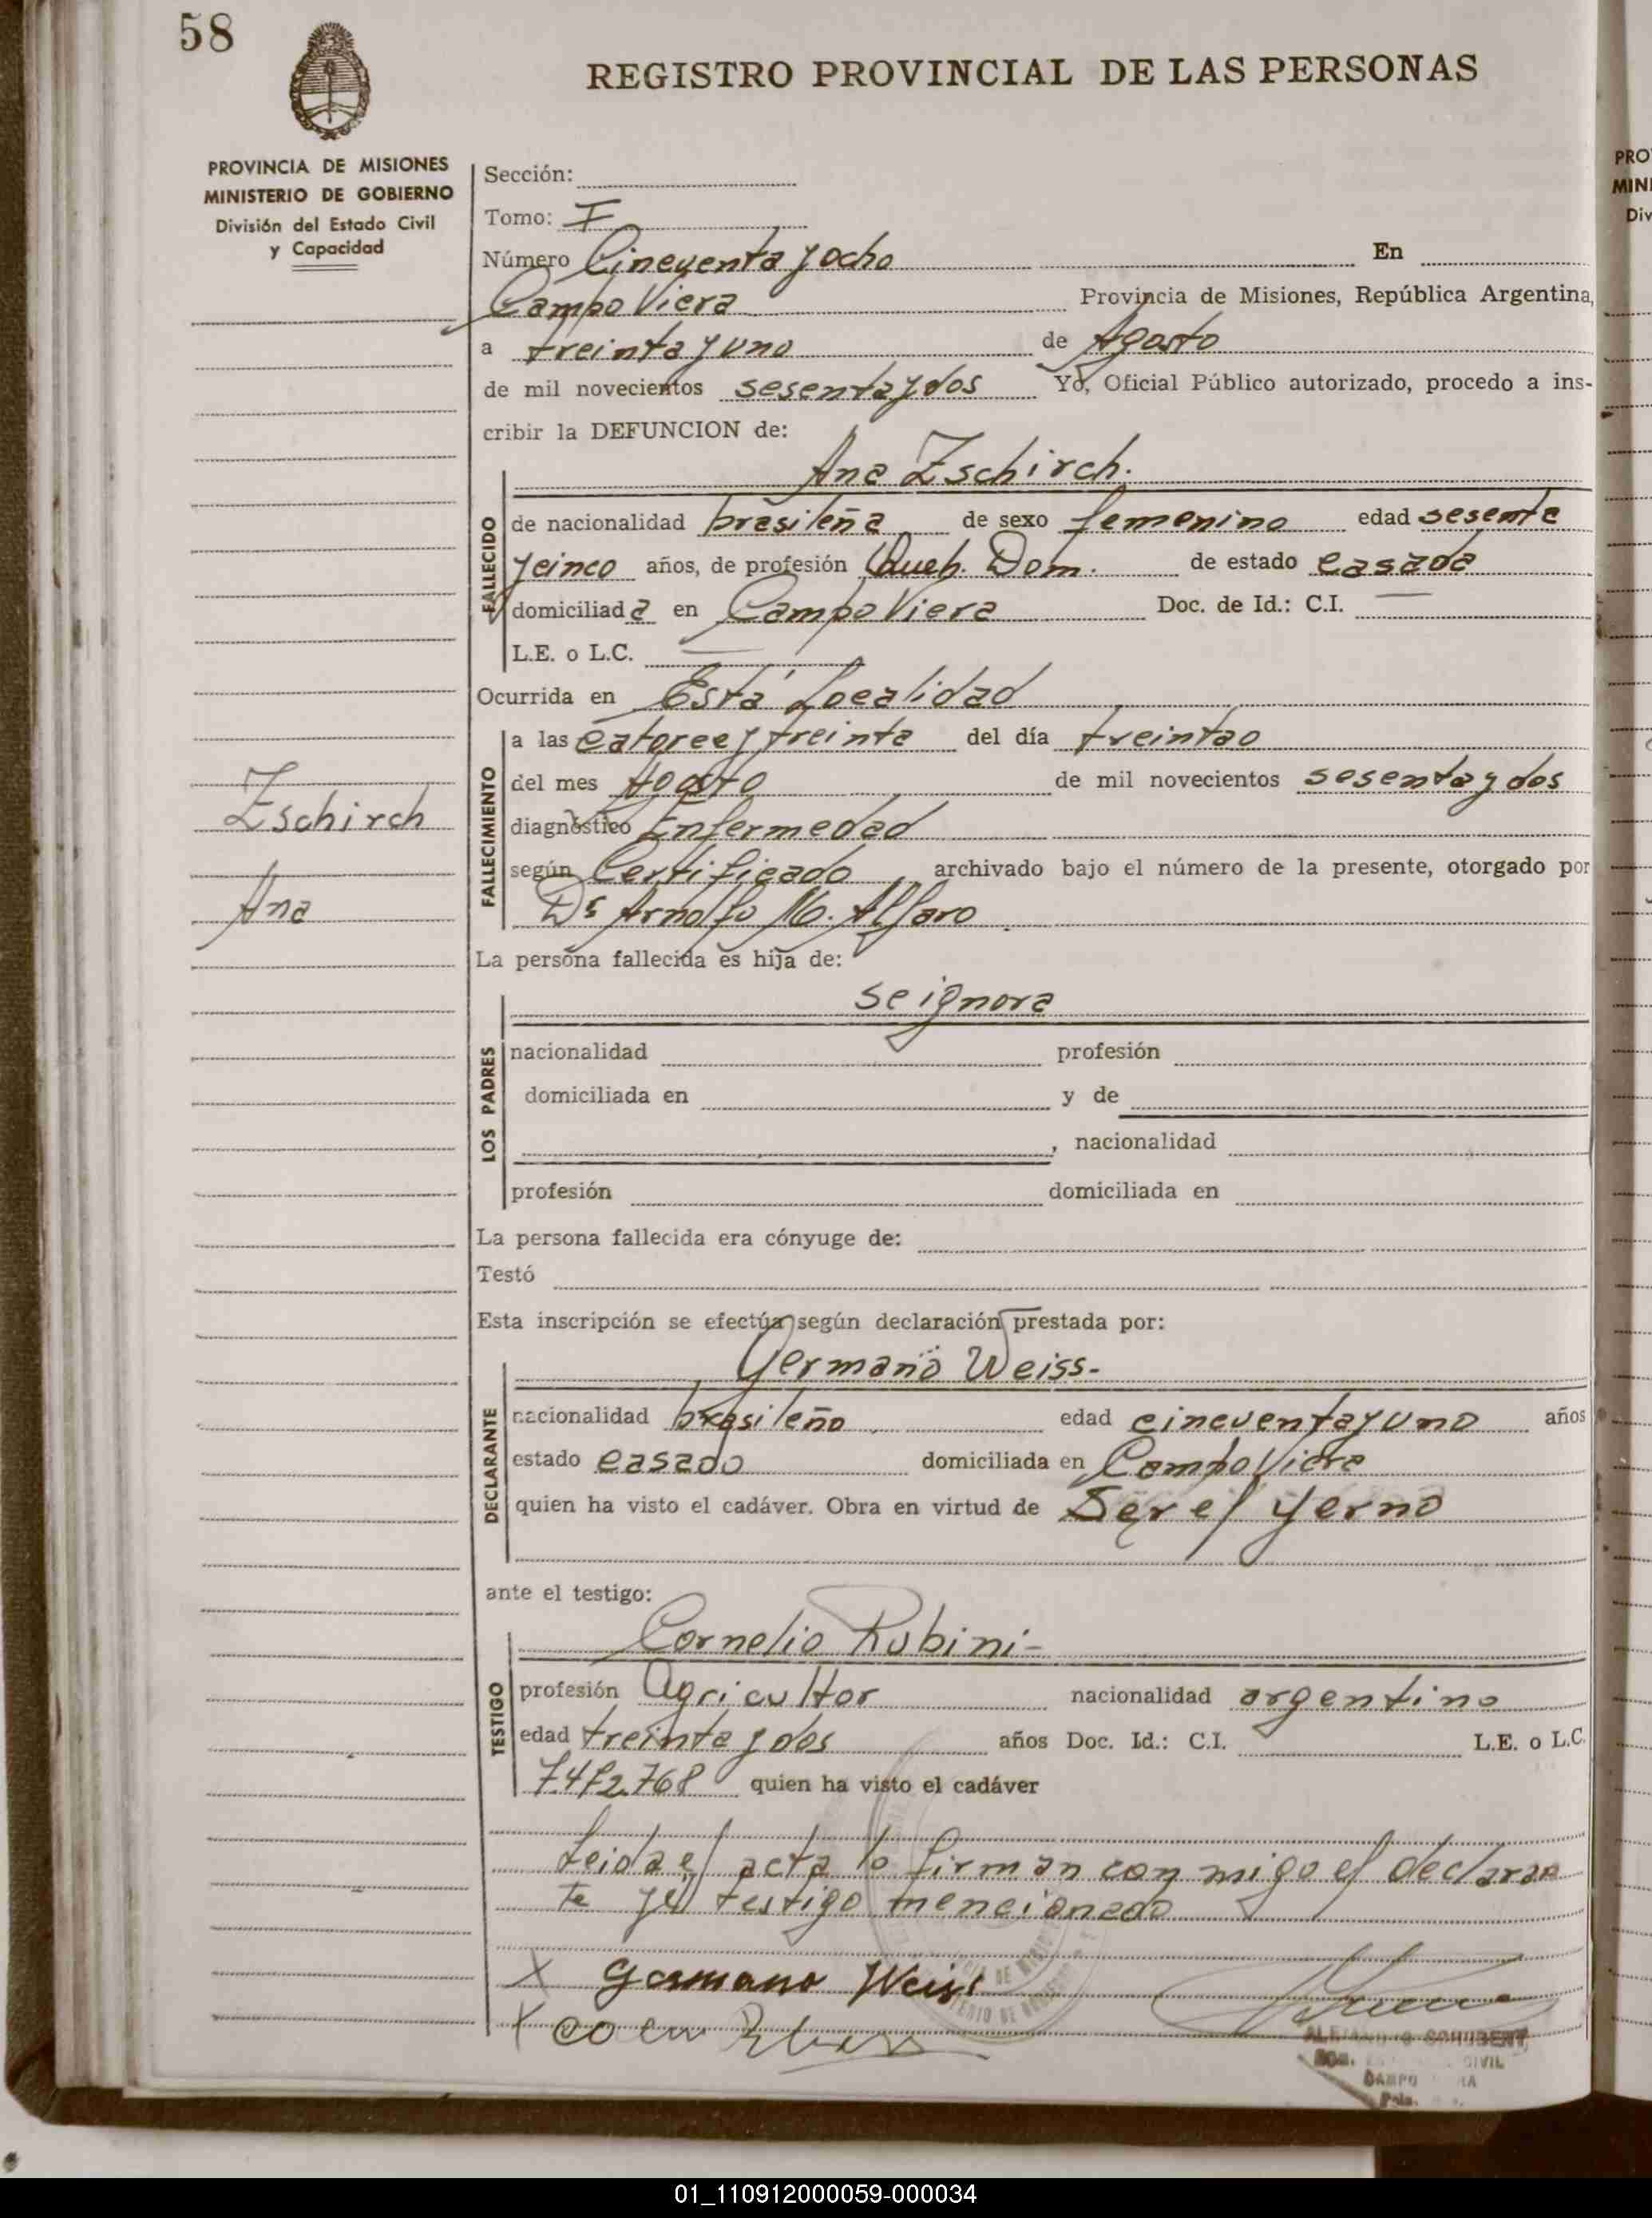 58
REGISTRO PROVINCIAL DE LAS PERSONAS
PROVINCIA DE MISIONES
MINISTERIO DE GOBIERNO
División del Estado Civil
y Capacidad
Sección:
Tomo: I
Número Cincuenta y ocho En
Campo Viera Provincia de Misiones, República Argentina,
a treinta y uno de Agosto
de mil novecientos sesenta y dos Yo, Oficial Público autorizado, procedo a ins-
cribir la DEFUNCION de:
Ana Zschirch.
FALLECIDO
de nacionalidad brasileña de sexo femenino edad sesenta
y cinco años, de profesión Queh. Dom. de estado casada
domiciliada en Campo Viera Doc. de Id.: C.I. —
L.E. o L.C. —
Ocurrida en Esta Localidad
FALLECIMIENTO
a las catorce y treinta del día treintao
del mes Agosto de mil novecientos sesenta y dos
diagnóstico Enfermedad
según Certificado archivado bajo el número de la presente, otorgado por
Dr Arnolfo M. Alfaro
Zschirch
Ana
La persona fallecida es hija de:
se ignora
LOS PADRES
nacionalidad profesión
domiciliada en y de
, nacionalidad
profesión domiciliada en
La persona fallecida era cónyuge de:
Testó
Esta inscripción se efectúa según declaración prestada por:
Germano Weiss-
DECLARANTE
nacionalidad brasileño edad cincuenta y uno años
estado casado domiciliada en Campo Viera
quien ha visto el cadáver. Obra en virtud de Ser el yerno
ante el testigo:
Cornelio Rubini-
TESTIGO
profesión Agricultor nacionalidad argentino
edad treinta y dos años Doc. Id.: C.I. L.E. o L.C.
quien ha visto el cadáver
Leida el acta lo firman conmigo el declaran
te y el testigo mencionado
X Germano Weiss
X
ALEJANDRO SCHUBERT
CIVIL
CAMPO
PRO
MINI
Div
01_110912000059-000034